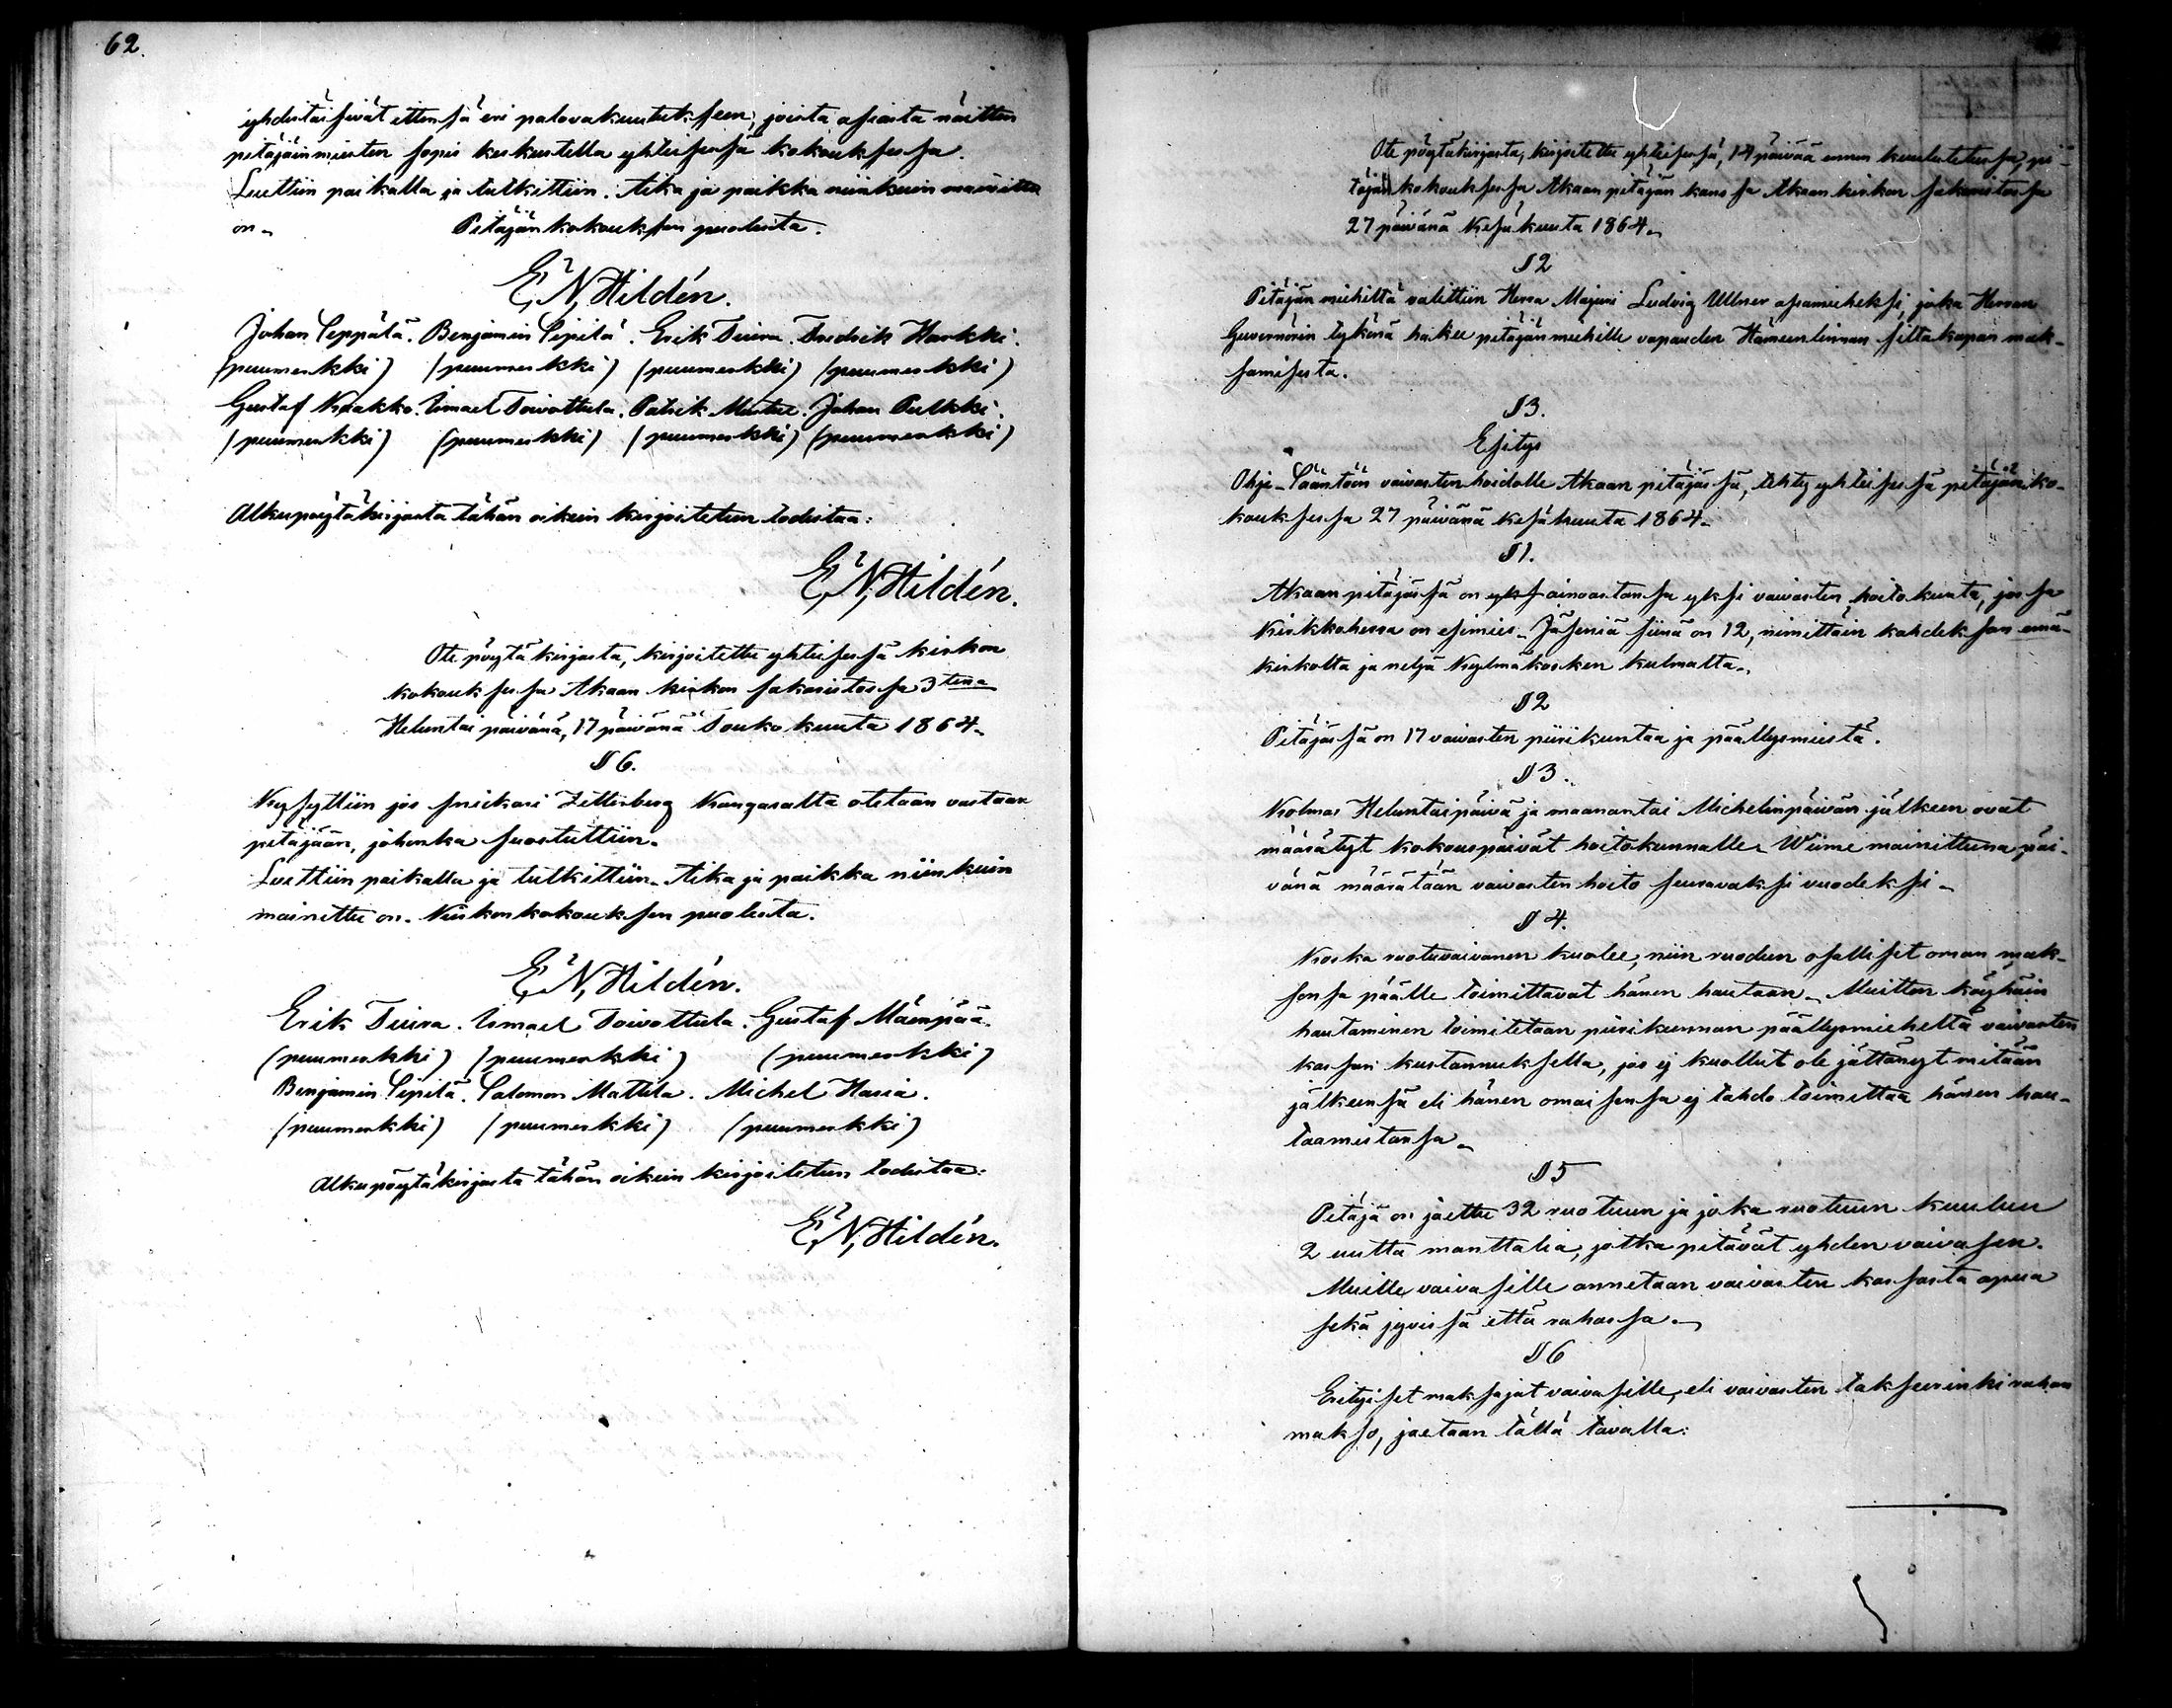 62.
yhdistäisivät itsensä eri palovakuutukseen; joista asiasta näitten
pitäjänmiesten sopii keskustella yhteisessä kokouksessa.
Luettiin paikalla ja tulkittiin. Aika ja paikka niinkuin mainittu
on. Pitäjänkokouksen puolesta.
E, N, Hildén.
Johan Seppälä. Benjamin Sipilä. Erik Tiura. Fredrik Harkki.
(puumerkki) (puumerkki) (puumerkki) (puumerkki)
Gustaf Kaakko. Ismael Toivottula. Patrik Mustue. Johan Pulkki.
(puumerkki) (puumerkki) (puumerkki) (puumerkki)
Alkupöytäkirjasta tähän oikein kirjoitetun todistaa:
E, N, Hildén.
Ote pöytäkirjasta, kirjoitettu yhteisessä kirkon
kokouksessa Akaan kirkon sakaristossa 3tena
Heluntai päivänä, 17 päivänä Toukokuuta 1864.
§ 6.
Kysyttiin jos snickari Zetterberg Kangasalta otetaan vastaan
pitäjään, johonka suostuttiin.
Luettiin paikalla ja tulkittiin. Aika ja paikka niinkuin
mainittu on. Kirkonkokouksen puolesta.
E, N, Hildén.
Erik Tiura. Ismael Toivottula. Gustaf Mäenpää.
(puumerkki) (puumerkki) (puumerkki)
Benjamin Sipilä. Salomon Mattila. Michel Haria.
(puumerkki) (puumerkki) (puumerkki)
Alkupöytäkirjasta tähän oikein kirjoitetun todistaa:
E, N, Hildén.
Ote pöytäkirjasta, kirjoitettu yhteisessä, 14 päivää ennen kuulutetussa, pi-
täjänkokouksessa Akaan pitäjän kanssa Akaan kirkon sakaristossa
27 päivänä Kesäkuuta 1864.
§ 2
Pitäjän miehiltä valittiin Herra Majuri Ludvig Ullner asiamieheksi, joka Herran
Guvernörin tykönä hakee pitäjänmiehille vapauden Hämeenlinnan siltakapan mak-
samisesta.
§ 3.
Esitys
Ohje-Sääntöön vaivastenhoidolle Akaan pitäjässä, tehty yhteisessä pitäjänko-
kouksessa 27 päivänä Kesäkuuta 1864.
§ 1.
Akaan pitäjässä on yks ainoastansa yksi vaivasten hoitokunta, jossa
Kirkkoherra on esimies. Jäseniä siinä on 12, nimittäin kahdeksan emä-
kirkolta ja neljä Kylmäkosken kulmalta.
§ 2
Pitäjässä on 17 vaivasten piirikuntaa ja päällysmiestä.
§ 3.
Kolmas Heluntaipäivä ja maanantai Michelinpäivän jälkeen ovat
määrätyt kokouspäivät hoitokunnalle. Wiime mainittuna päi-
vänä määrätään vaivasten hoito seuraavaksi vuodeksi.
§ 4.
Koska ruotuvaivanen kuolee, niin ruodun osalliset oman mak-
sonsa päälle toimittavat hänen hautaan. Muitten köyhäin
hautaminen toimitetaan piirikunnan päällysmieheltä vaivasten
kassan kustannuksella, jos ej kuollut ole jättänyt mitään
jälkeensä eli hänen omaisensa ej tahdo toimittaa hänen hau-
taamistansa.
§ 5
Pitäjä on jaettu 32 ruotuun ja joka ruotuun kuuluu
2 uutta manttalia, jotka pitävät yhden vaivasen.
Muille vaivasille annetaan vaivasten kassasta apua
sekä jyvissä että rahassa.
§ 6
Erityiset maksajat vaivasille, eli vaivasten takseerinki rahan
makso, jaetaan tällä tavalla: